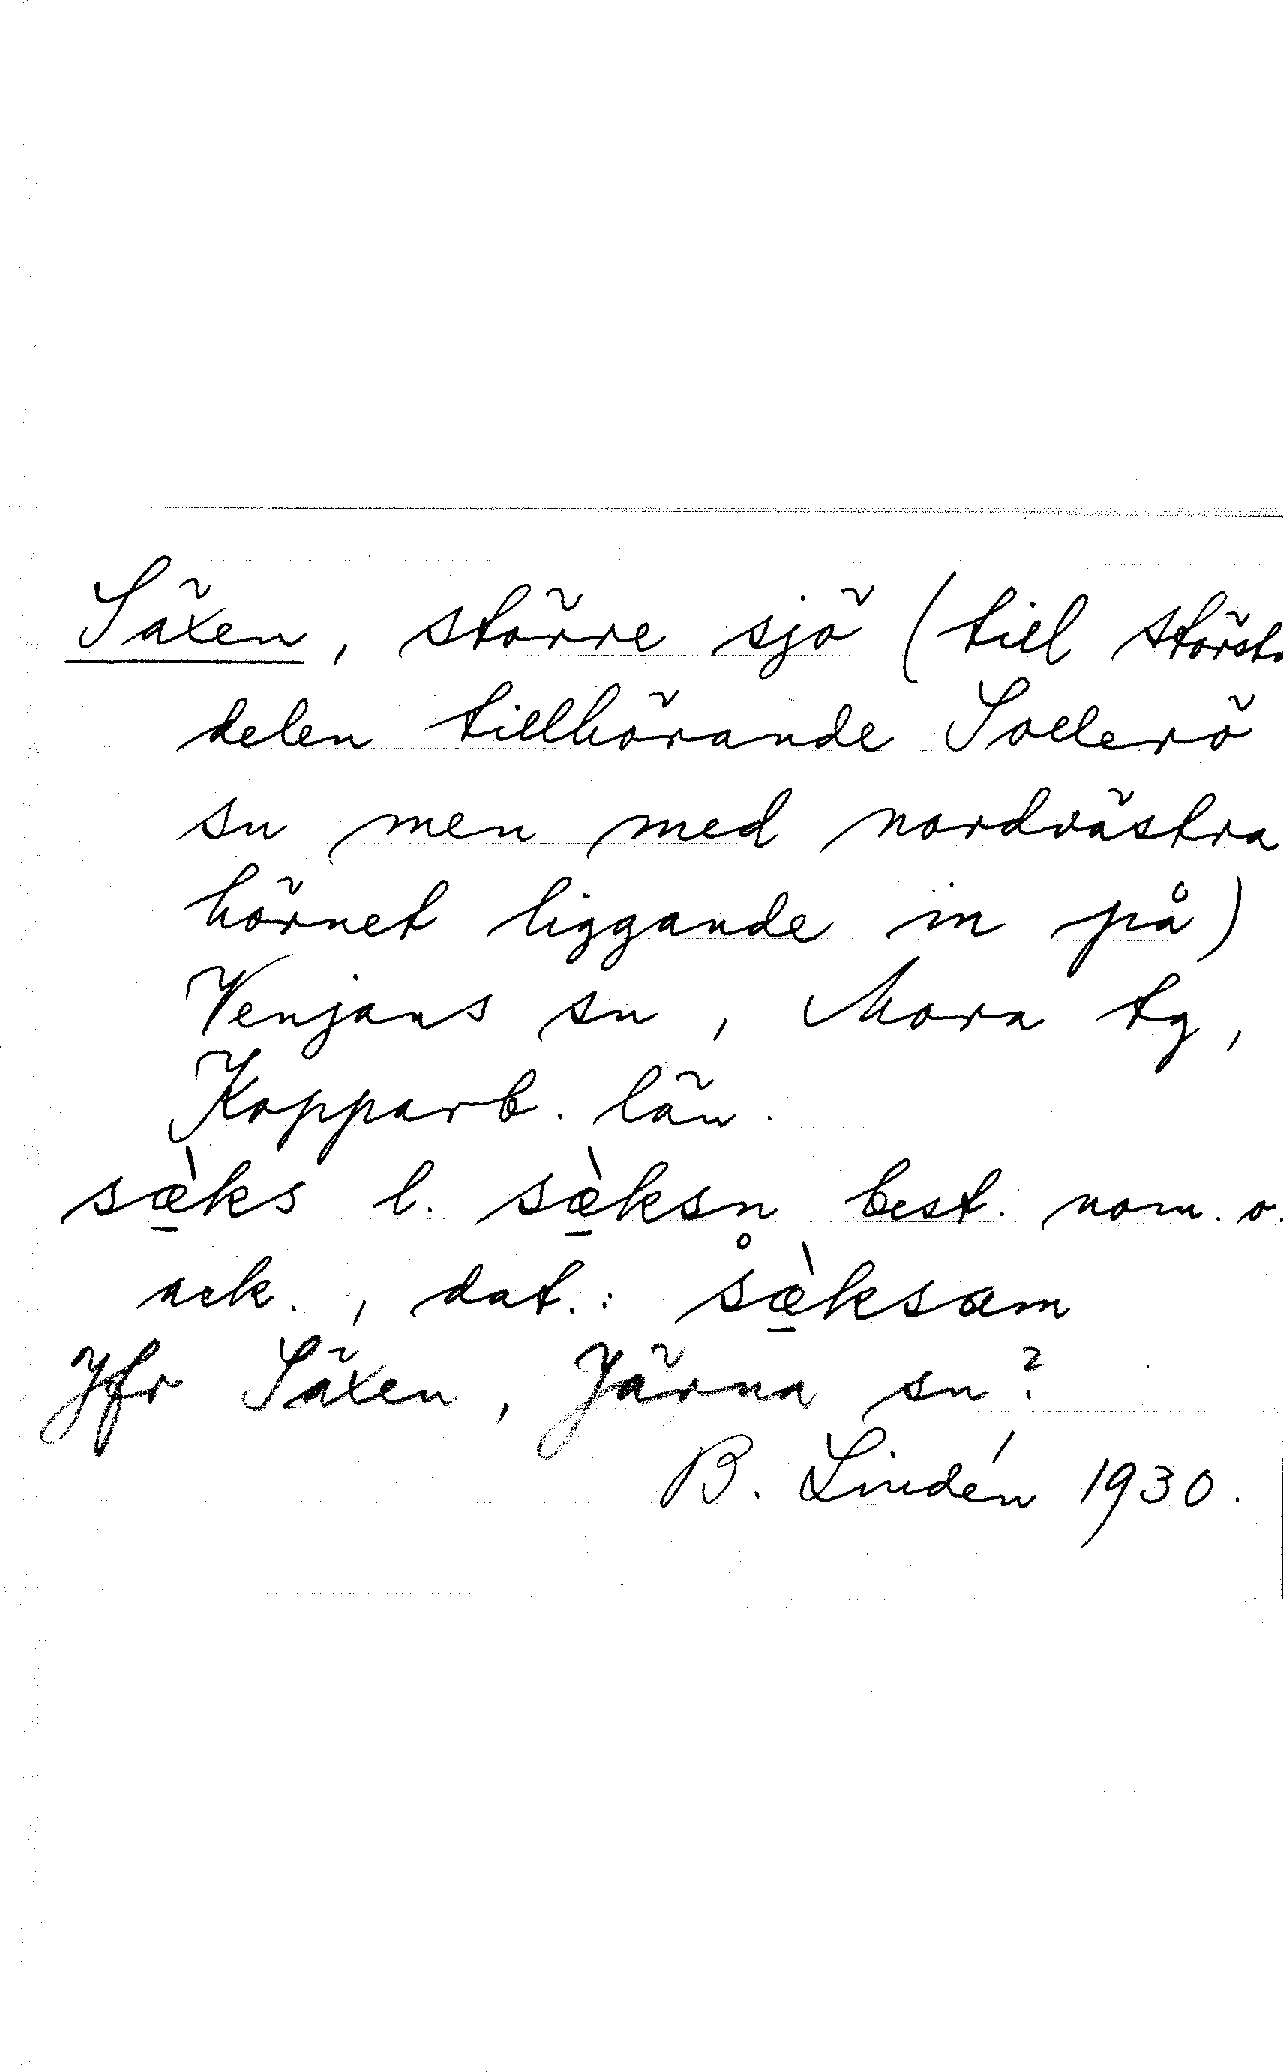 Säxen, större sjö (till största
delen tillhörande Sollerö
sn men med nordvästra
hörnet liggande in på)
Venjans sn, Mora tg,
Kopparb. län.
sæ̠̀ks l. sæ̠̀ksn̥ best. nom. o.
ack., dat.: sæ̠̀ksam
Jfr Säxen, Järna sn?
B. Lindén 1930.